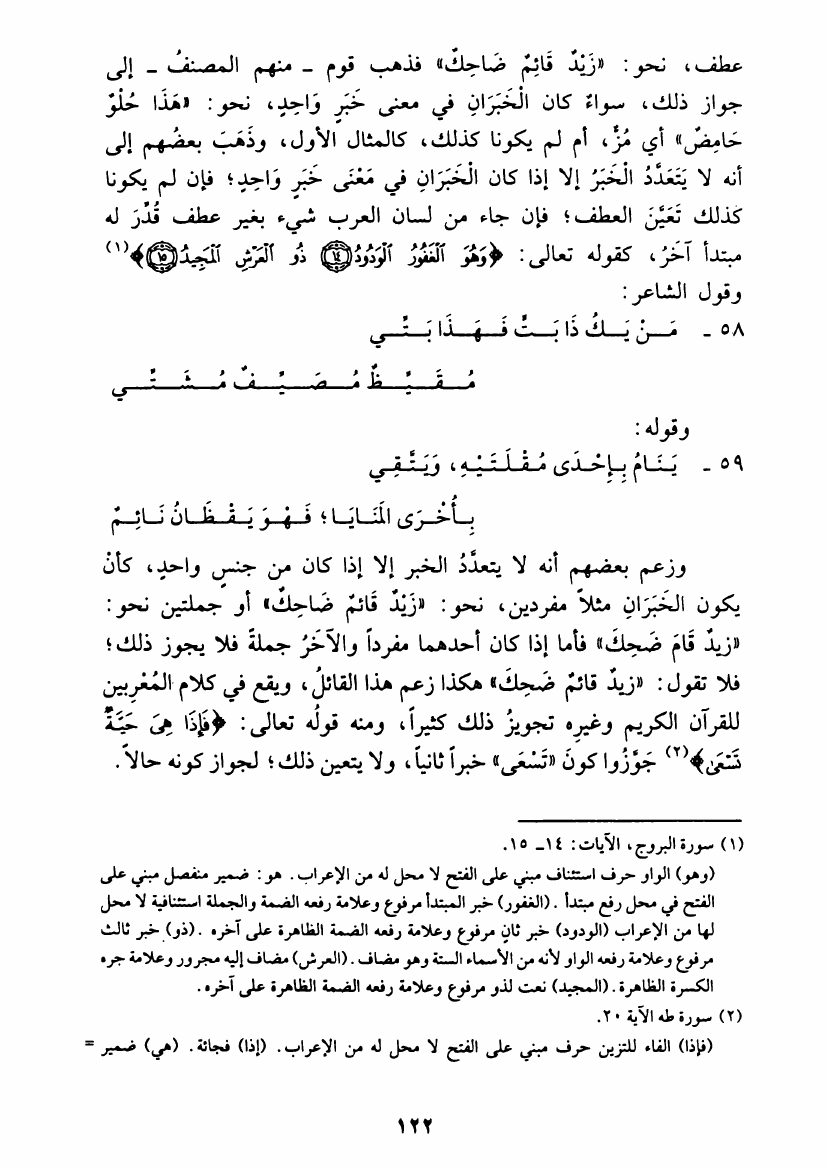 عطف، نحو: «زَيْدٌ قَائِمٌ ضَاحِكٌ» فذهب قوم ـ منهم المصنفُ ـ إلى
جواز ذلك، سواءٌ كان الْخَبَرَانِ في معنى خَبَرٍ وَاحِدٍ، نحو: «هَذَا حُلْوٌ
حَامِضٌ» أي مُزٌّ، أم لم يكونا كذلك، كالمثال الأول، وذَهَبَ بعضُهم إلى
أنه لا يَتَعَدَّدُ الْخَبَرُ إلا إذا كان الْخَبَرَانِ في مَعْنَى خَبَرٍ وَاحِدٍ؛ فإن لم يكونا
كذلك تَعَيَّنَ العطف؛ فإن جاء من لسان العرب شيء بغير عطف قُدِّرَ له
مبتدأ آخَرُ، كقوله تعالى: ﴿وَهُوَ ٱلْغَفُورُ ٱلْوَدُودُ ۝١٤ ذُو ٱلْعَرْشِ ٱلْمَجِيدُ ۝١٥﴾(١)
وقول الشاعر:
٥٨ ـ مَـنْ يَـكُ ذَا بَـتٍّ فَـهَـذَا بَـتِّـي
مُـقَـيِّـظٌ مُـصَـيِّـفٌ مُـشَـتِّـي
وقوله:
٥٩ ـ يَنَـامُ بِـإِحْـدَى مُـقْـلَـتَـيْـهِ، وَيَـتَّـقِـي
بِـأُخْـرَى المَنَـايَـا؛ فَـهْـوَ يَـقْـظَـانُ نَـائِـمُ
وزعم بعضهم أنه لا يتعدَّدُ الخبر إلا إذا كان من جنسٍ واحدٍ، كأنْ
يكون الخَبَرَانِ مثلاً مفردين، نحو: «زَيْدٌ قَائمٌ ضَاحِكٌ» أو جملتين نحو:
«زيدٌ قَامَ ضَحِكَ» فأما إذا كان أحدهما مفرداً والآخَرُ جملةً فلا يجوز ذلك؛
فلا تقول: «زيدٌ قائمٌ ضَحِكَ» هكذا زعم هذا القائلُ، ويقع في كلام المُعْرِبين
للقرآن الكريم وغيره تجويزُ ذلك كثيراً، ومنه قولُه تعالى: ﴿فَإِذَا هِىَ حَيَّةٌ
تَسْعَىٰ﴾(٢) جَوَّزُوا كونَ «تَسْعَى» خبراً ثانياً، ولا يتعين ذلك؛ لجواز كونه حالاً.
(١) سورة البروج، الآيات: ١٤ـ ١٥.
(وهو) الواو حرف استئناف مبني على الفتح لا محل له من الإعراب. هو: ضمير منفصل مبني على
الفتح في محل رفع مبتدأ. (الغفور) خبر المبتدأ مرفوع وعلامة رفعه الضمة والجملة استئنافية لا محل
لها من الإعراب (الودود) خبر ثانٍ مرفوع وعلامة رفعه الضمة الظاهرة على آخره. (ذو) خبر ثالث
مرفوع وعلامة رفعه الواو لأنه من الأسماء الستة وهو مضاف. (العرش) مضاف إليه مجرور وعلامة جره
الكسرة الظاهرة. (المجيد) نعت لذو مرفوع وعلامة رفعه الضمة الظاهرة على آخره.
(٢) سورة طه الآية ٢٠.
(فإذا) الفاء للتزين حرف مبني على الفتح لا محل له من الإعراب. (إذا) فجائة. (هي) ضمير =
١٢٢